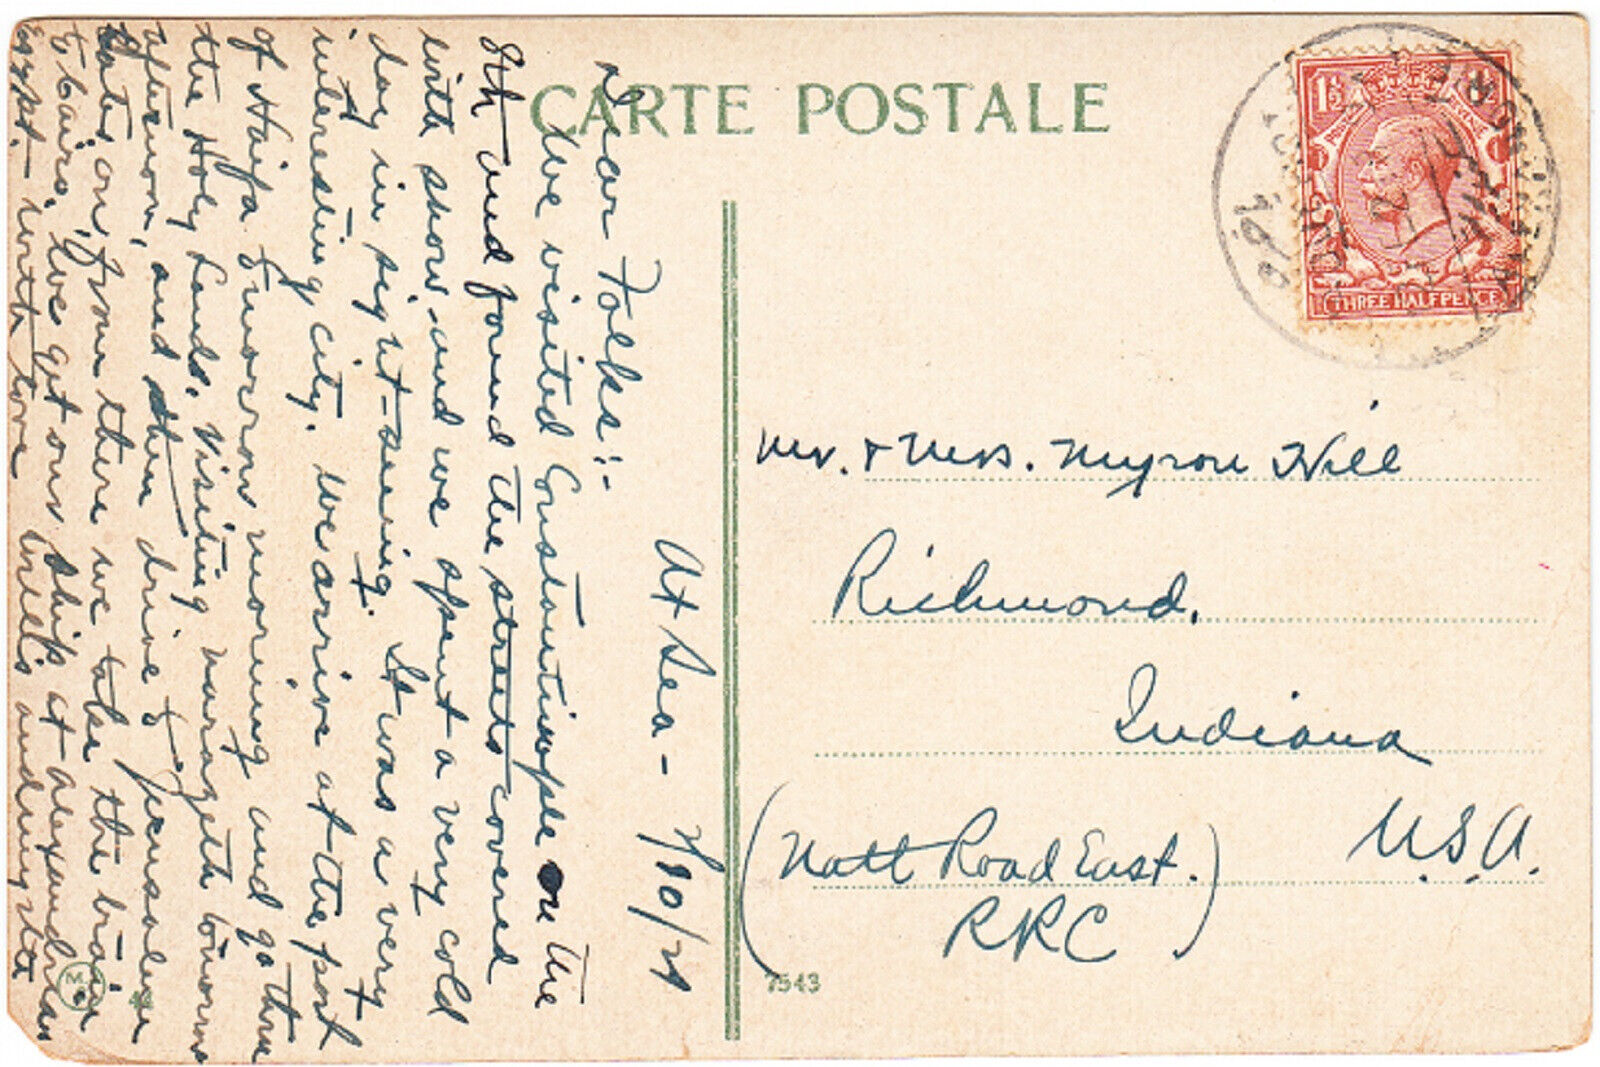 CARTE POSTALE
At Sea - 2/10/24
Dear Folks:-
We visited Constantinople on the
8th and found the streets covered
with snow, and we spent a very cold
day in sight-seeing. It was a very
interesting city. We arrive at the port
of Haifa tomorrow morning and go thru
the Holy Lands, visiting Nazareth tomorrow
afternoon, and then drive to Jerusalem
later on, from there we take the train
to Cairo, we get our ship at Alexandria
Egypt - with love
Mr. & Mrs. Myron Hill
Richmond,
Indiana
U.S.A.
(Nott Road East.)
RRC
7543
THREE HALFPENCE